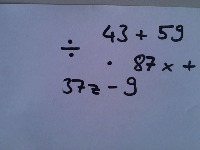 43 + 59
÷
· 87x +
37z - 9